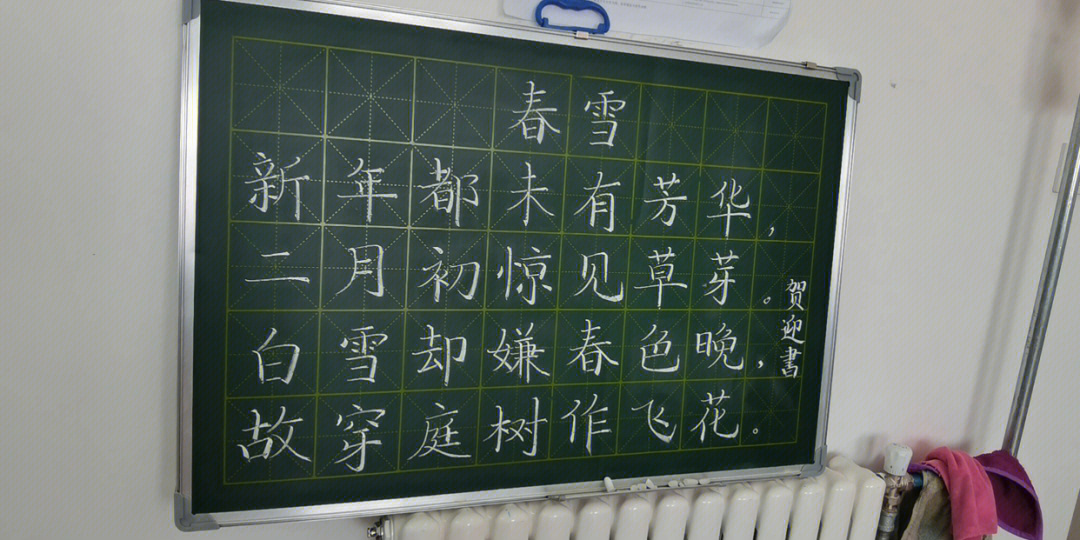 春雪
新年都未有芳华，
二月初惊见草芽。
白雪却嫌春色晚，
故穿庭树作飞花。
贺迎書